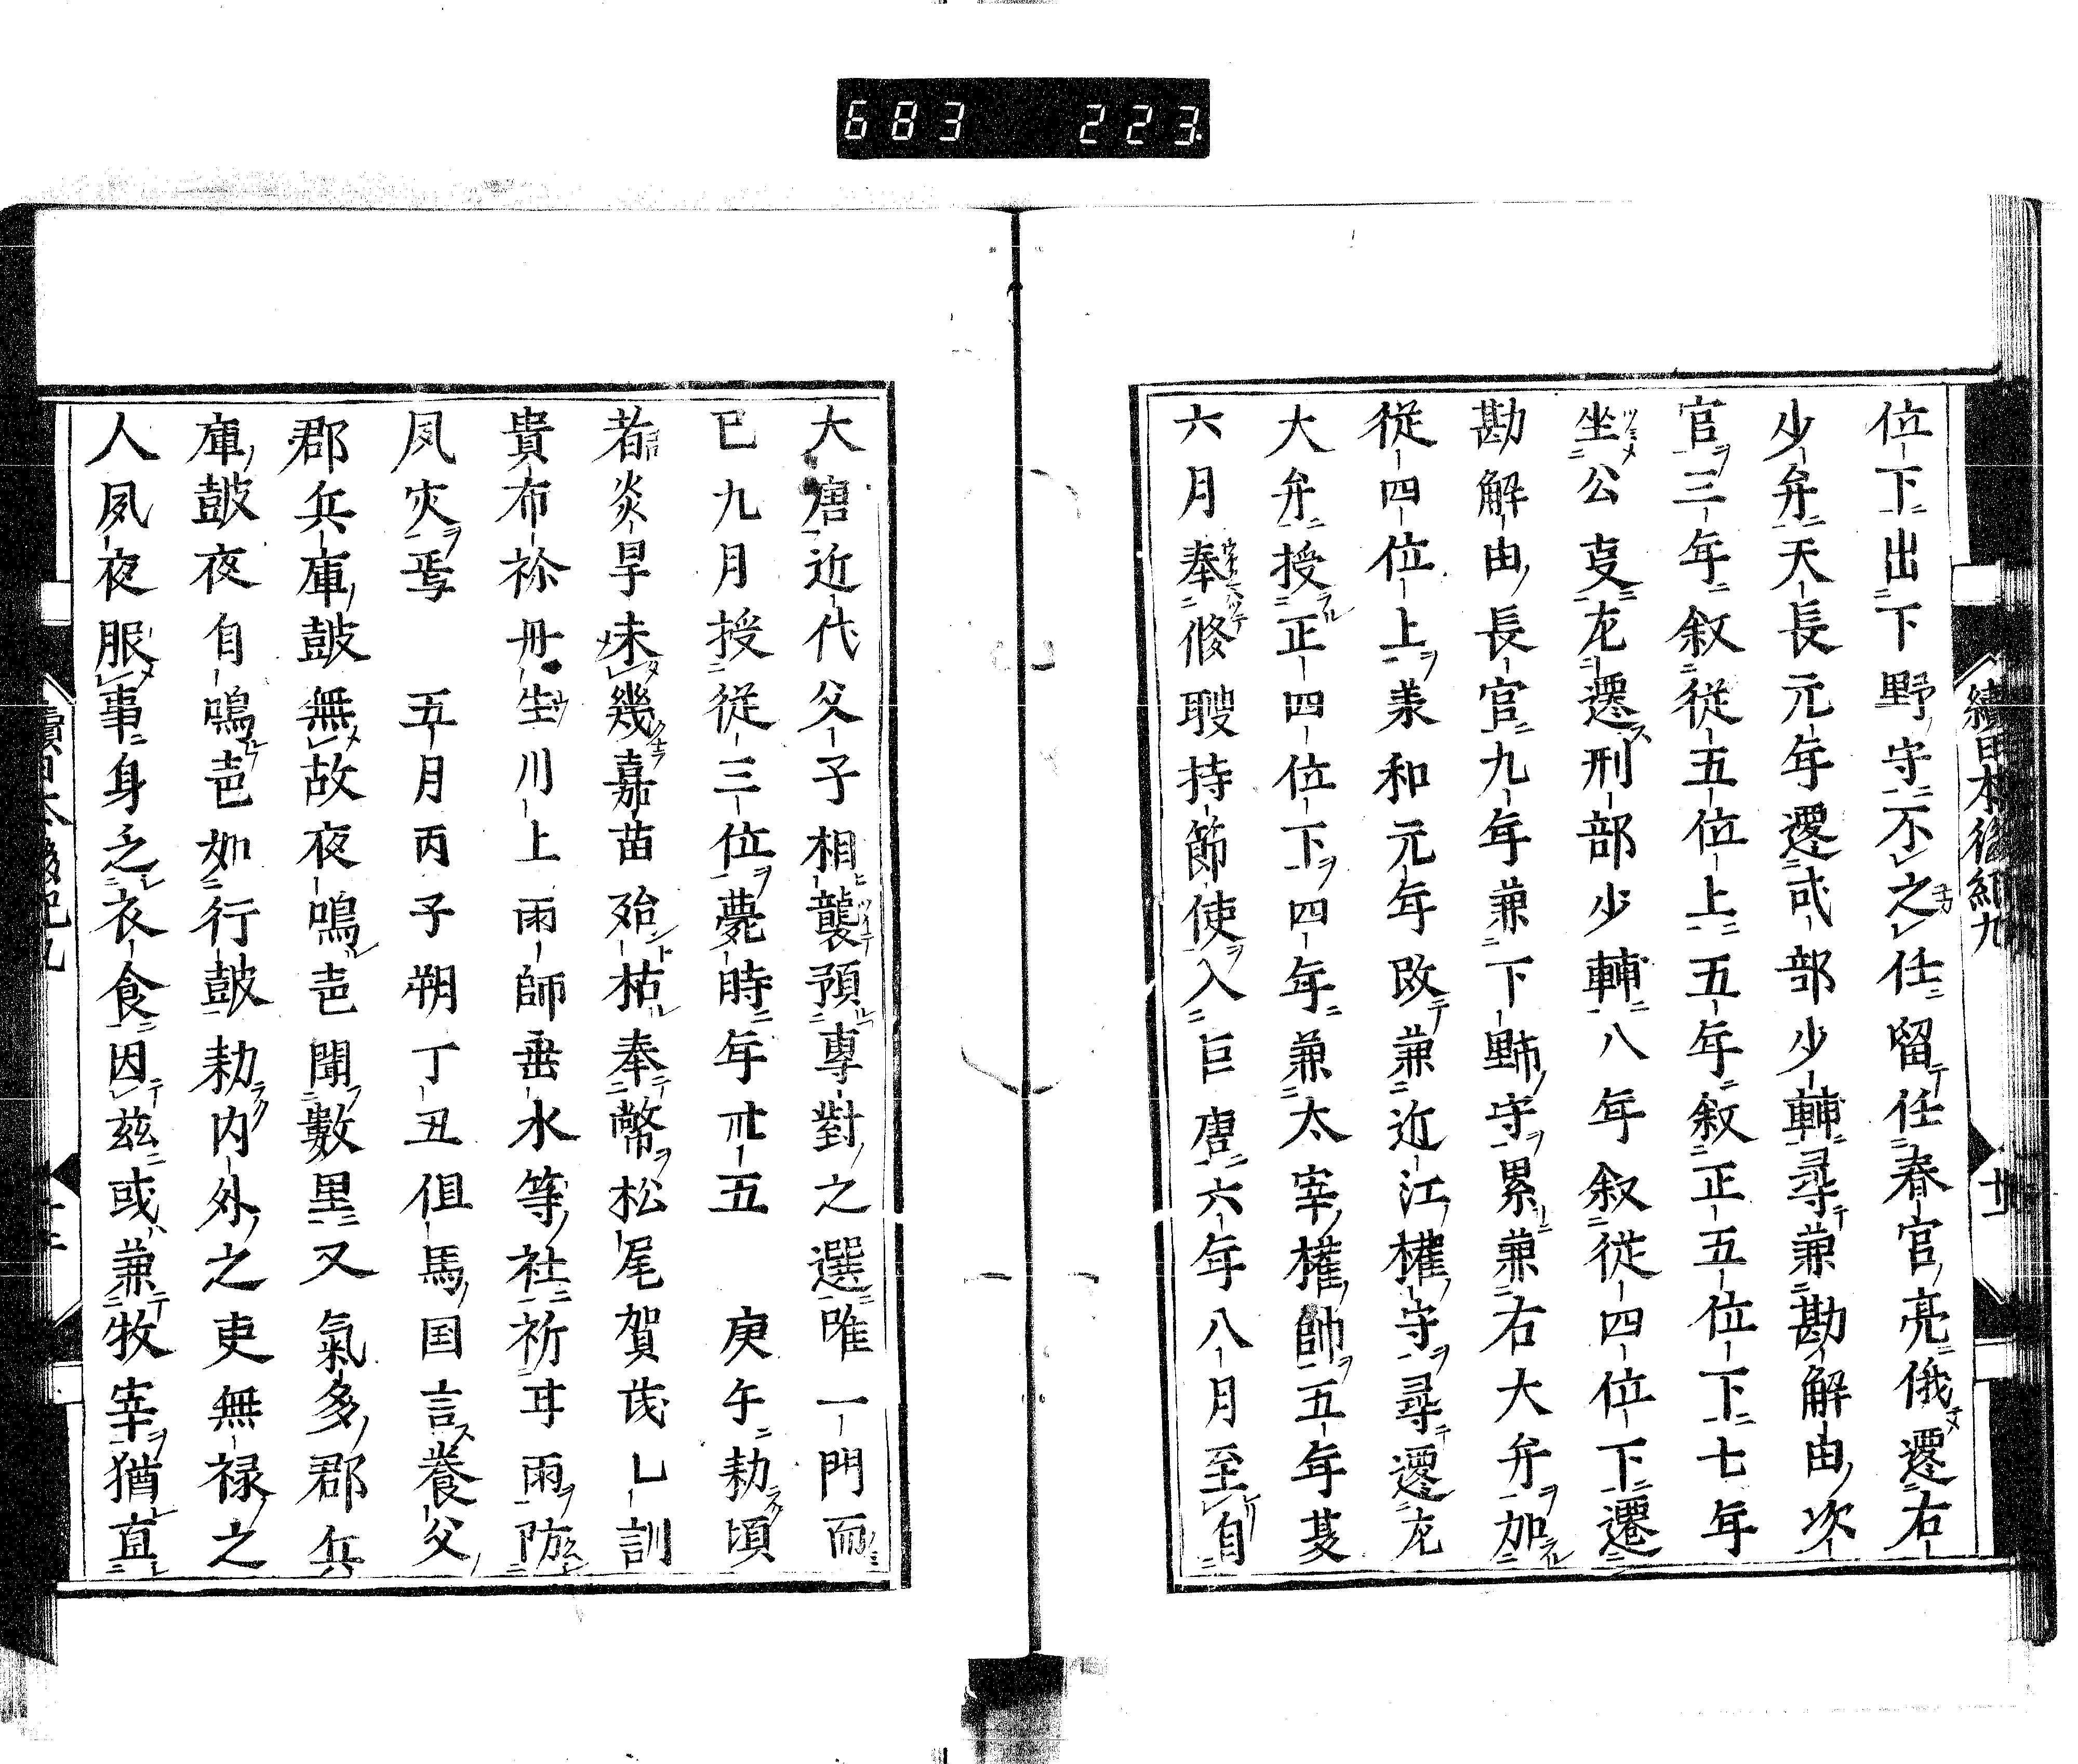 683 223
續日本後紀九 廿
位下出下野守不之任留任春官亮俄遷右
少弁天長元年遷式部少輔尋兼勘解由次
官三年叙從五位上五年叙正五位下七年
坐公叓左遷刑部少輔八年叙從四位下遷
勘解由長官九年兼下野守累兼右大弁加
從四位上兼和元年改兼近江權守尋遷左
大弁授正四位下四年兼太宰權帥五年夏
六月奉修聘持節使入巨唐六年八月至自
大唐近代父子相襲預專對之選唯一門而
已九月授從三位薨時年卌五 庚午勅頃
者炎旱未幾嘉苗殆枯奉幣松尾賀茂乚訓
貴布祢丹生川上雨師垂水等社祈耳雨防
凤灾焉 五月丙子朔丁丑但馬国言養父
郡兵庫皷無故夜鳴㐵聞數里又氣多郡兵
庫皷夜自鳴㐵如行皷勅内外之吏無禄之
人夙夜服事身乏衣食因兹或兼牧宰猶直